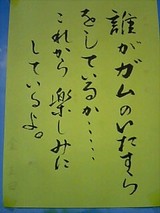 誰がガムのいたずら
をしているか‥‥
これから楽しみに
しているよ。